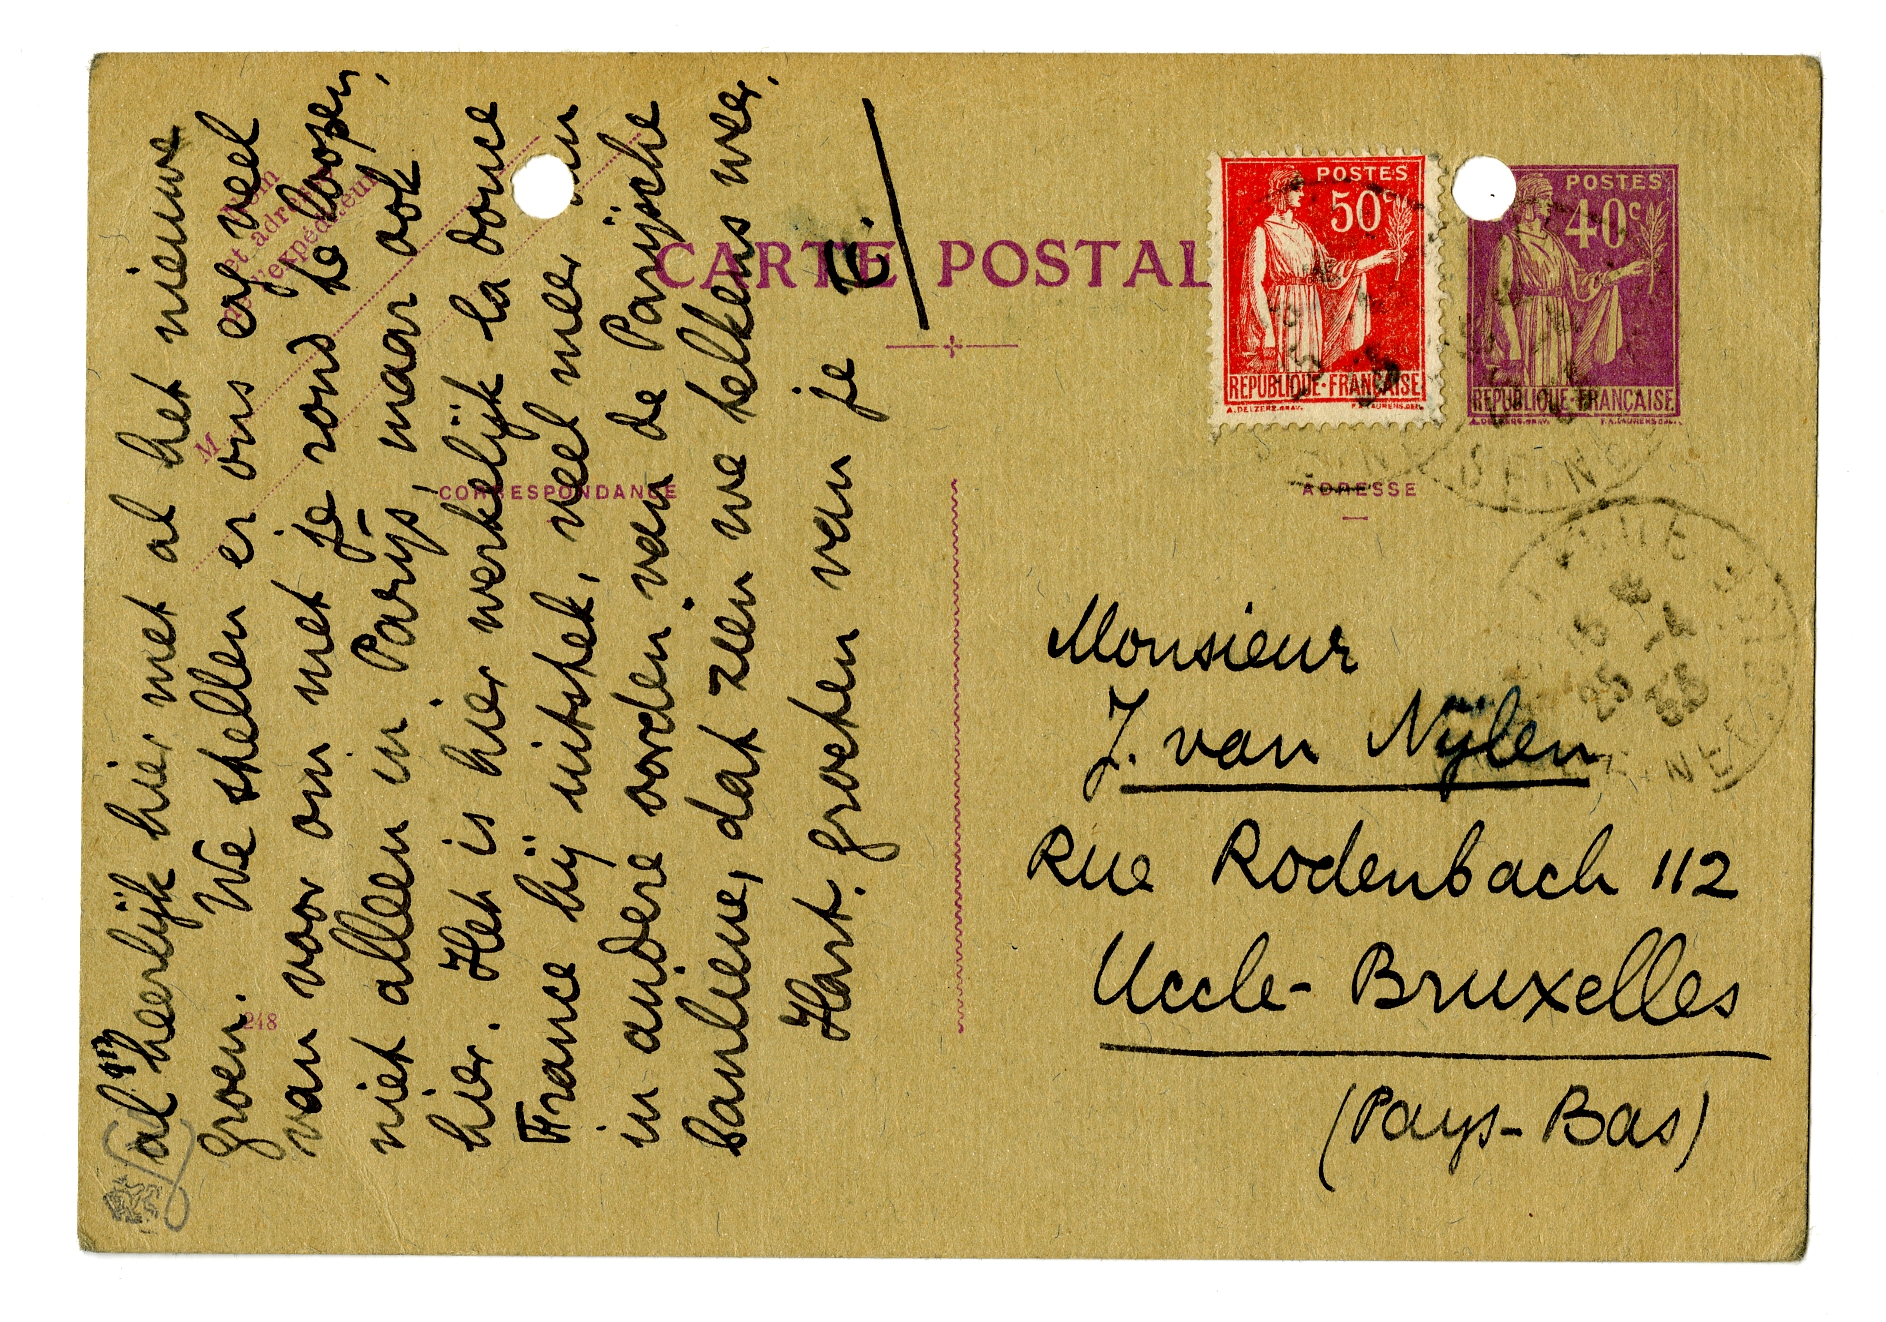 CARTE POSTALE
Nom
et adresse
de l'expéditeur
M
CORRESPONDANCE
ADRESSE
248
POSTES
50c
REPUBLIQUE·FRANÇAISE
POSTES
40c
REPUBLIQUE·FRANÇAISE
al heerlijk hier met al het nieuwe
groen. We stellen er ons erg veel
van voor om met je rond te loopen,
niet alleen in Parijs, maar ook
hier. Het is hier werkelijk la douce
France bij uitstek, veel meer dan
in andere oorden van de Parijsche
banlieue, dat zien we telkens weer.
Hart. groeten van je
E.
Monsieur
J. van Nijlen
Rue Rodenbach 112
Uccle-Bruxelles
(Pays-Bas)